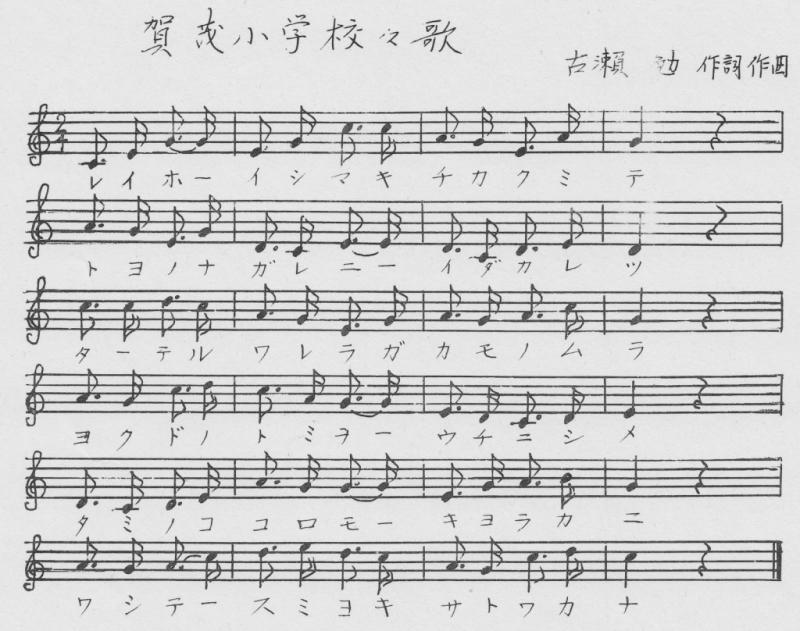 賀茂小学校々歌
古瀬 功 作詞作曲
2
4
レイホーイシマキチカクミテ
トヨノナガレニーイダカレツ
ターテルワレラガカモノムラ
ヨクドノトミヲーウチニシメ
タミノココロモーキヨラカニ
ワシテースミヨキサトワカナ